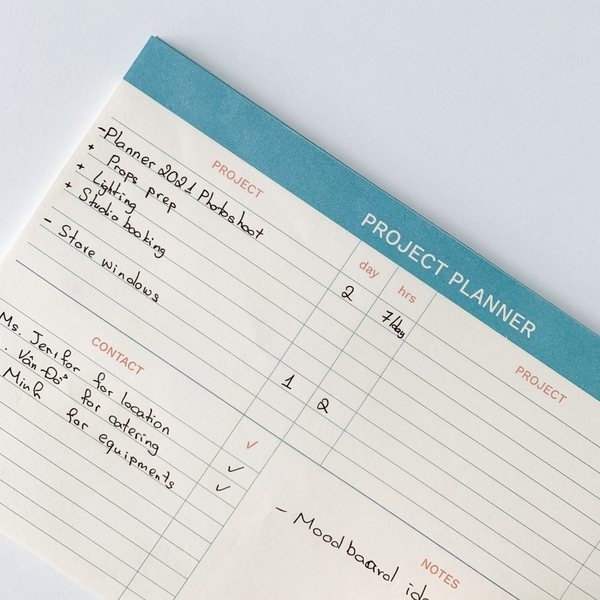 PROJECT PLANNER
PROJECT
day
hrs
-Planner 2021 Photoshoot
2
7/day
+ Props prep
+ Lighting
+ Studio booking
- Store windows
1
2
PROJECT
CONTACT
✓
Ms. Jenifor for location
✓
. Vân-Đỗ for catering
✓
Minh for equipments
NOTES
- Moodboard